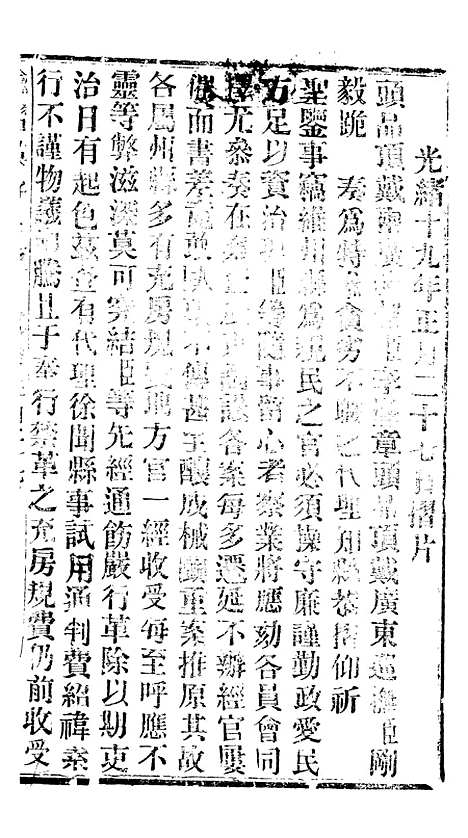 光緒十九年正月二十七日摺片
頭品頂戴兩廣總督臣李瀚章頭品頂戴廣東巡撫臣剛
毅跪 奏為特參貪劣不職之代理知縣恭摺仰祈
聖鑒事竊維州縣為親民之官必須操守廉謹勤政愛民
方足以資治理臣等隨事留心考察業將應劾各員會同
擇尤參奏在案 各案每多遷延不辦經官屢
催而書差 不傳甚至釀成械鬭重案推原其故
各屬州縣多有充房規費地方官一經收受每至呼應不
靈等弊滋深莫可究結臣等先經通飭嚴行革除以期吏
治日有起色茲查有代理徐聞縣事試用通判費紹禕素
行不謹物議沸騰且于奉行禁革之充房規費仍前收受